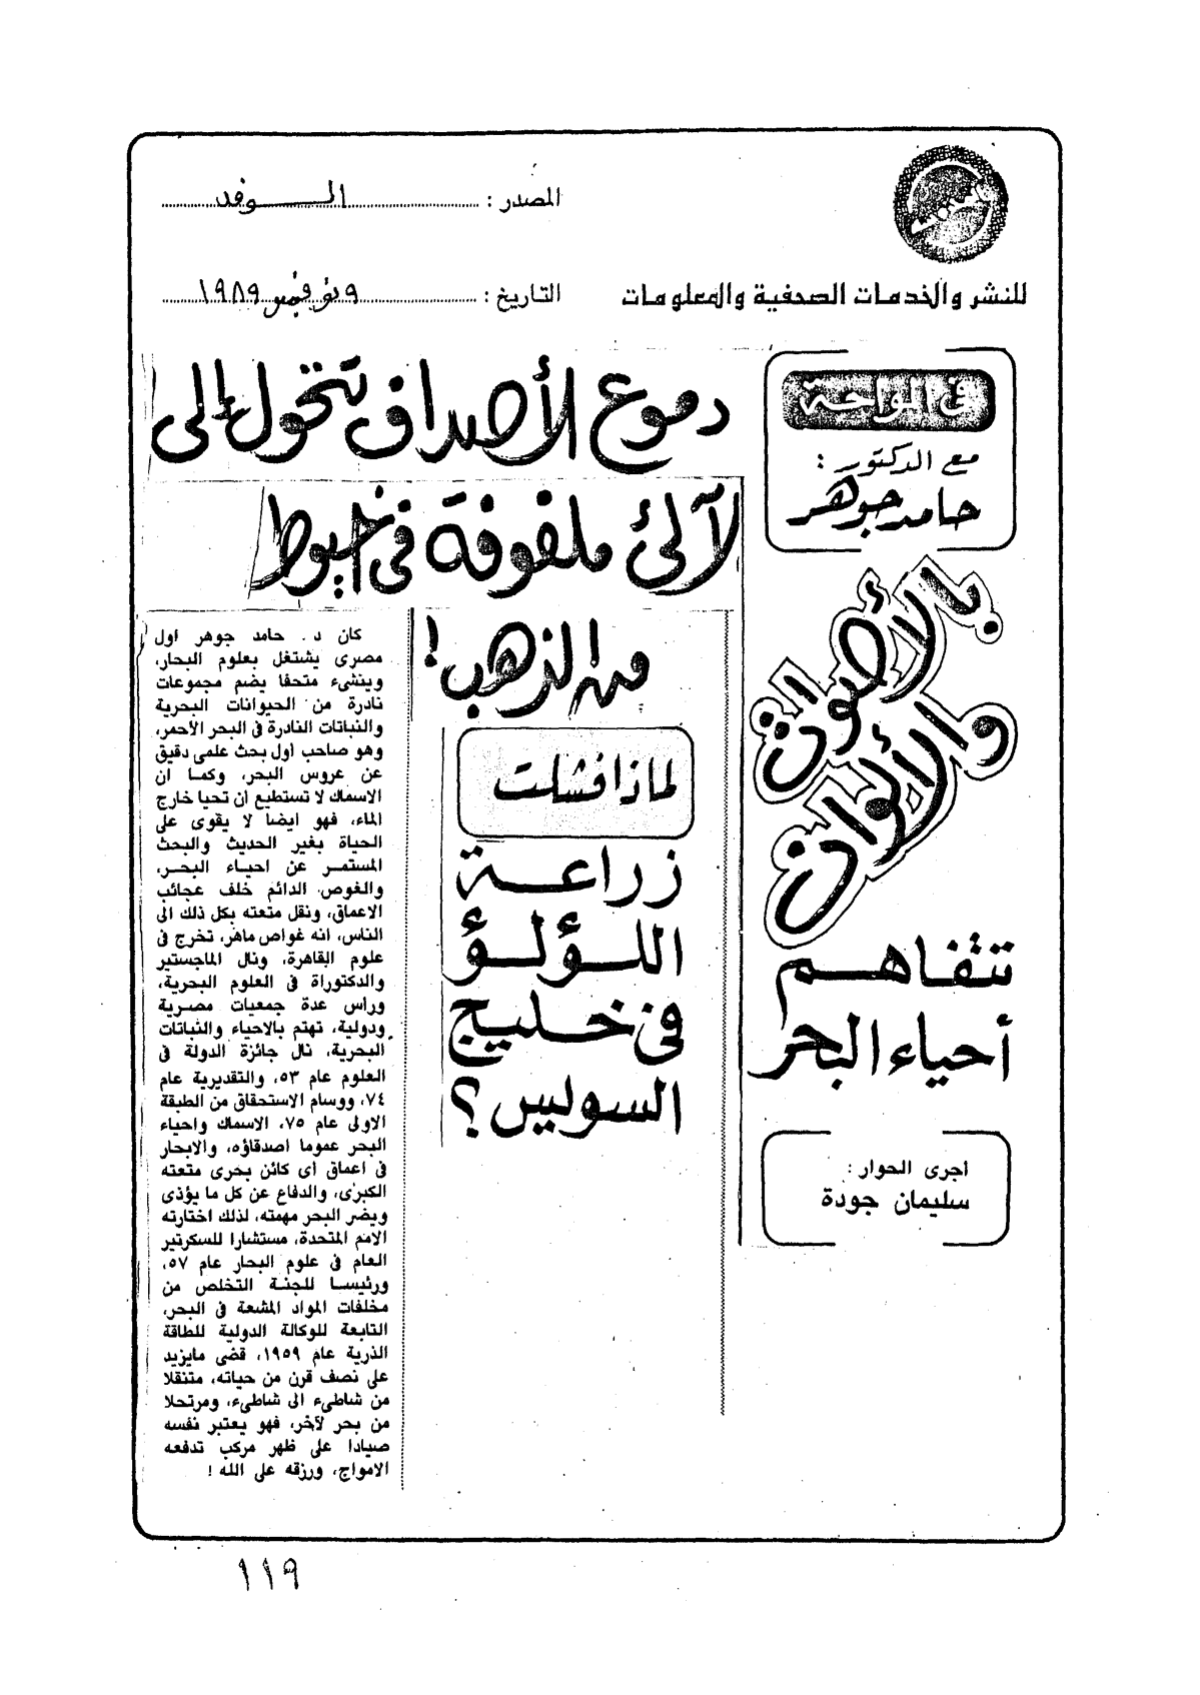 المصدر : الوفد
للنشر والخدمات الصحفية والمعلومات
التاريخ : ٩ نوفمبر ١٩٨٩
فى الواحة
مع الدكتور :
حامد جوهر
دموع الأصداف تتحول إلى
لآلئ ملفوفة فى خيوط
من الذهب !
بالأصوات
والألوان
تتفاهم
أحياء البحر
اجرى الحوار :
سليمان جودة
لماذا فشلت
زراعة
اللؤلؤ
فى خليج
السويس ؟
كان د. حامد جوهر اول
مصرى يشتغل بعلوم البحار،
وينشىء متحفا يضم مجموعات
نادرة من الحيوانات البحرية
والنباتات النادرة فى البحر الأحمر،
وهو صاحب اول بحث علمى دقيق
عن عروس البحر، وكما ان
الاسماك لا تستطيع ان تحيا خارج
الماء، فهو ايضا لا يقوى على
الحياة بغير الحديث والبحث
المستمر عن احياء البحر،
والغوص الدائم خلف عجائب
الاعماق، ونقل متعته بكل ذلك الى
الناس، انه غواص ماهر، تخرج فى
علوم القاهرة، ونال الماجستير
والدكتوراة فى العلوم البحرية،
وراس عدة جمعيات مصرية
ودولية، تهتم بالاحياء والنباتات
البحرية، نال جائزة الدولة فى
العلوم عام ٥٣، والتقديرية عام
٧٤، ووسام الاستحقاق من الطبقة
الاولى عام ٧٥، الاسماك واحياء
البحر عموما اصدقاؤه، والابحار
فى اعماق اى كائن بحرى متعته
الكبرى، والدفاع عن كل ما يؤذى
ويضر البحر مهمته، لذلك اختارته
الامم المتحدة، مستشارا للسكرتير
العام فى علوم البحار عام ٥٧،
ورئيسا للجنة التخلص من
مخلفات المواد المشعة فى البحر،
التابعة للوكالة الدولية للطاقة
الذرية عام ١٩٥٩، قضى مايزيد
على نصف قرن من حياته، متنقلا
من شاطىء الى شاطىء، ومرتحلا
من بحر لآخر، فهو يعتبر نفسه
صيادا على ظهر مركب تدفعه
الامواج، ورزقه على الله !
١١٩